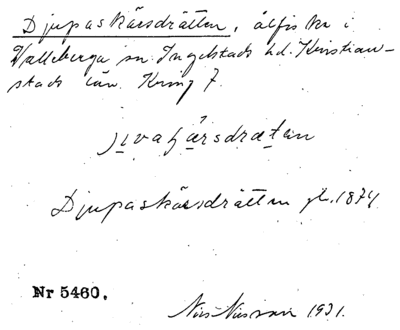 Djupaskärsdrätten, ålfiske i
Valleberga sn. Ingelstads hd. Kristian-
stads län. Kring 7.
Djupaskärsdrätten gb. 1874
Nr 5460.
1931.